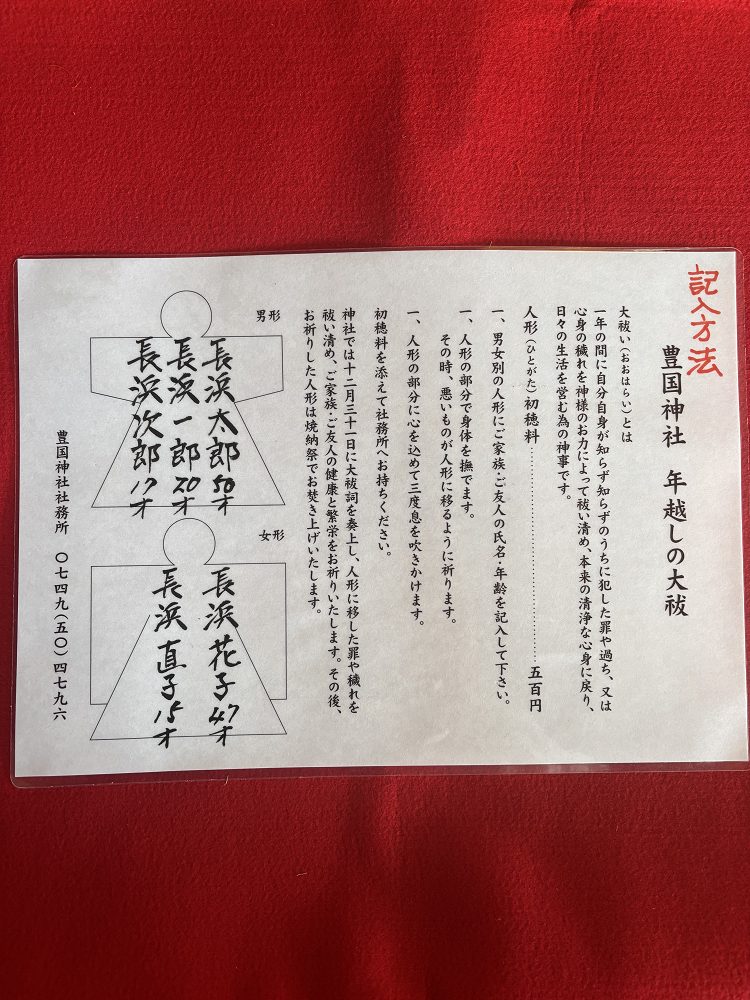 記入方法
豊国神社 年越しの大祓
大祓い(おおはらい)とは
一年の間に自分自身が知らず知らずのうちに犯した罪や過ち、又は
心身の穢れを神様のお力によって祓い清め、本来の清浄な心身に戻り、
日々の生活を営む為の神事です。
人形(ひとがた)初穂料…………………………五百円
一、男女別の人形にご家族・ご友人の氏名・年齢を記入して下さい。
一、人形の部分で身体を撫でます。
その時、悪いものが人形に移るように祈ります。
一、人形の部分に心を込めて三度息を吹きかけます。
初穂料を添えて社務所へお持ちください。
神社では十二月三十一日に大祓詞を奏上し、人形に移した罪や穢れを
祓い清め、ご家族・ご友人の健康と繁栄をお祈りいたします。その後、
お祈りした人形は焼納祭でお焚き上げいたします。
男形
長浜太郎 50才
長浜一郎 20才
長浜次郎 17才
女形
長浜花子 47才
長浜直子 15才
豊国神社社務所 〇七四九(五〇)四七九六